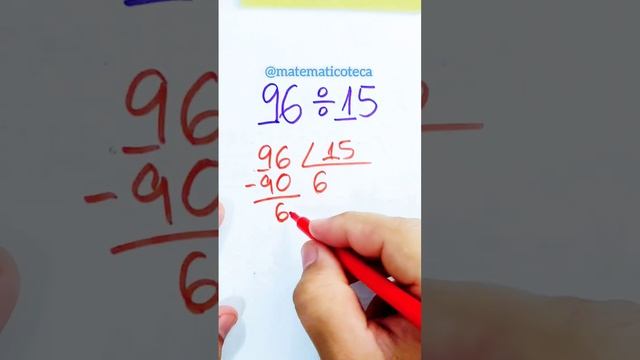 @matematicoteca
96 ÷ 15
96 15
-90 6
6